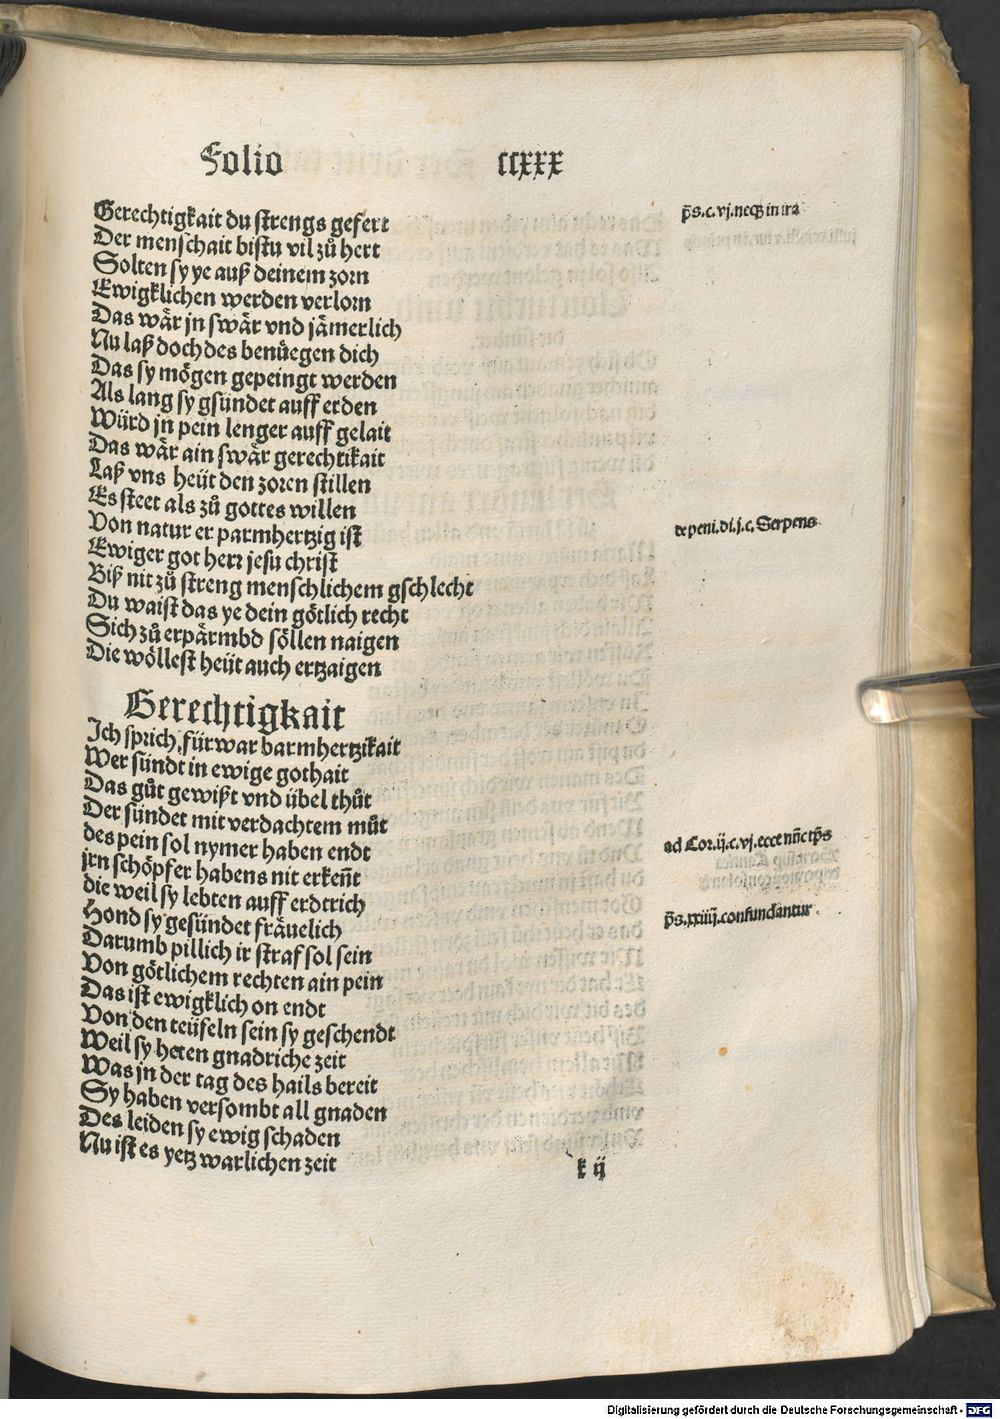 Folio ccxxx
Gerechtigkait du strengs gefert
Der menschait bistu vil zů hert
Solten sy ye auß deinem zorn
Ewigklichen werden verlorn
Das wär jn swär vnd jämerlich
Nu laß doch des benüegen dich
Das sy mögen gepeingt werden
Als lang sy gsündet auff erden
Würd jn pein lenger auff gelait
Das wär ain swär gerechtikait
Laß vns heüt den zoren stillen
Es steet als zů gottes willen
Von natur er parmhertzig ist
Ewiger got herr jesu christ
Biß nit zů streng menschlichem gschlecht
Du waist das ye dein götlich recht
Sich zů erpärmbd söllen naigen
Die wöllest heüt auch ertzaigen
p̃s.c.vj.neqꝫ in ira
de peni.di.j.c. Serpens
Gerechtigkait
Ich sprich, fürwar barmhertzikait
Wer sündt in ewige gothait
Das gůt gewißt vnd übel thůt
Der sündet mit verdachtem můt
des pein sol nymer haben endt
jrn schöpfer habens nit erkeñt
die weil sy lebten auff erdtrich
Hond sy gesündet fräuelich
Darumb pillich ir straf sol sein
Von götlichem rechten ain pein
Das ist ewigklich on endt
Von den teüfeln sein sy geschendt
Weil sy heten gnadriche zeit
Was jn der tag des hails bereit
Sy haben versombt all gnaden
Des leiden sy ewig schaden
Nu ist es yetz warlichen zeit
ad Cor.ij.c.vj.ecce nũc tp̃s
p̃s.xxiiij.confundantur.
k ij
Digitalisierung gefördert durch die Deutsche Forschungsgemeinschaft - DFG